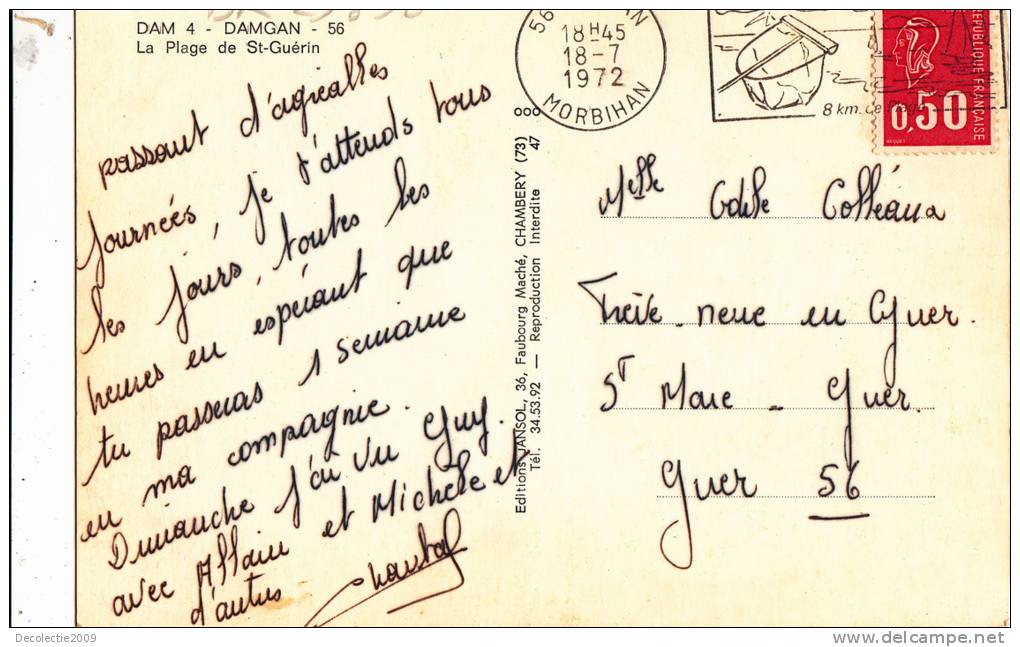 DAM 4 - DAMGAN - 56
La Plage de St-Guérin
passant d'agréables
journées, je t'attends tous
les jours, toutes les
heures en espérant que
tu passeras 1 semaine
en ma compagnie.
Dimanche j'ai vu Guy.
avec Allain et Michèle et
d'autres
Chantal
Editions JANSOL, 36, Faubourg Maché, CHAMBERY (73)
Tél. 34.53.92 — Reproduction Interdite 47
18H45
18-7
1972
MORBIHAN
8 km. de Plage
REPUBLIQUE FRANÇAISE
0,50
Melle Odile
neuve en Guer.
ST Marc - Guer.
Guer 56
Decolectie2009
delcampe.net